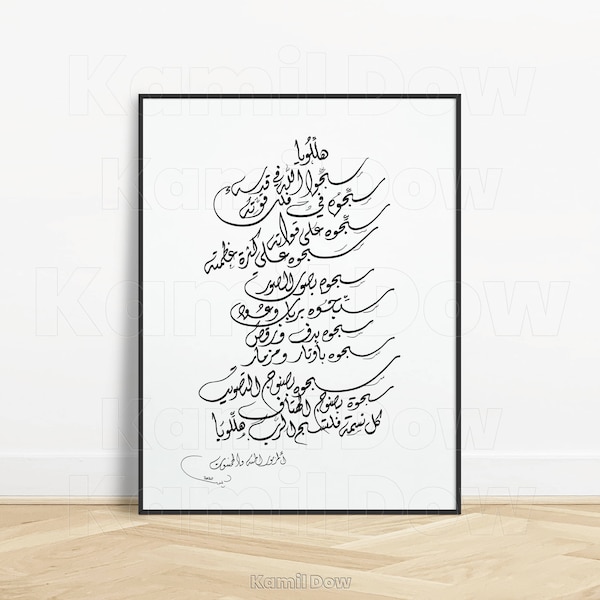 هللويا
سبحوا الله في قدسه
سبحوه في فلك قوته
سبحوه على قواته
سبحوه على كثرة عظمته
سبحوه بصوت الصور
سبحوه برباب وعود
سبحوه بدف ورقص
سبحوه بأوتار ومزمار
سبحوه بصنوج التصويت
سبحوه بصنوج الهتاف
كل نسمة فلتسبح الرب هللويا
المزمور المئة والخمسون
Kamil Dow
Kamil Dow
Kamil Dow
Kamil Dow
Kamil Dow
Kamil Dow